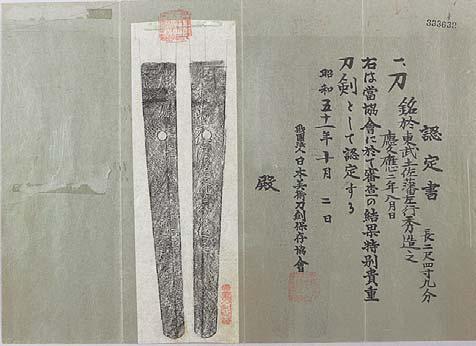 認定書
一、刀 銘於東武土佐藩左行秀造之 長二尺四寸九分
慶應二年八月日
右は當協會に於て審査の結果特別貴重
刀剣として認定する
昭和五十一年十月二日
財団法人日本美術刀剣保存協會
殿